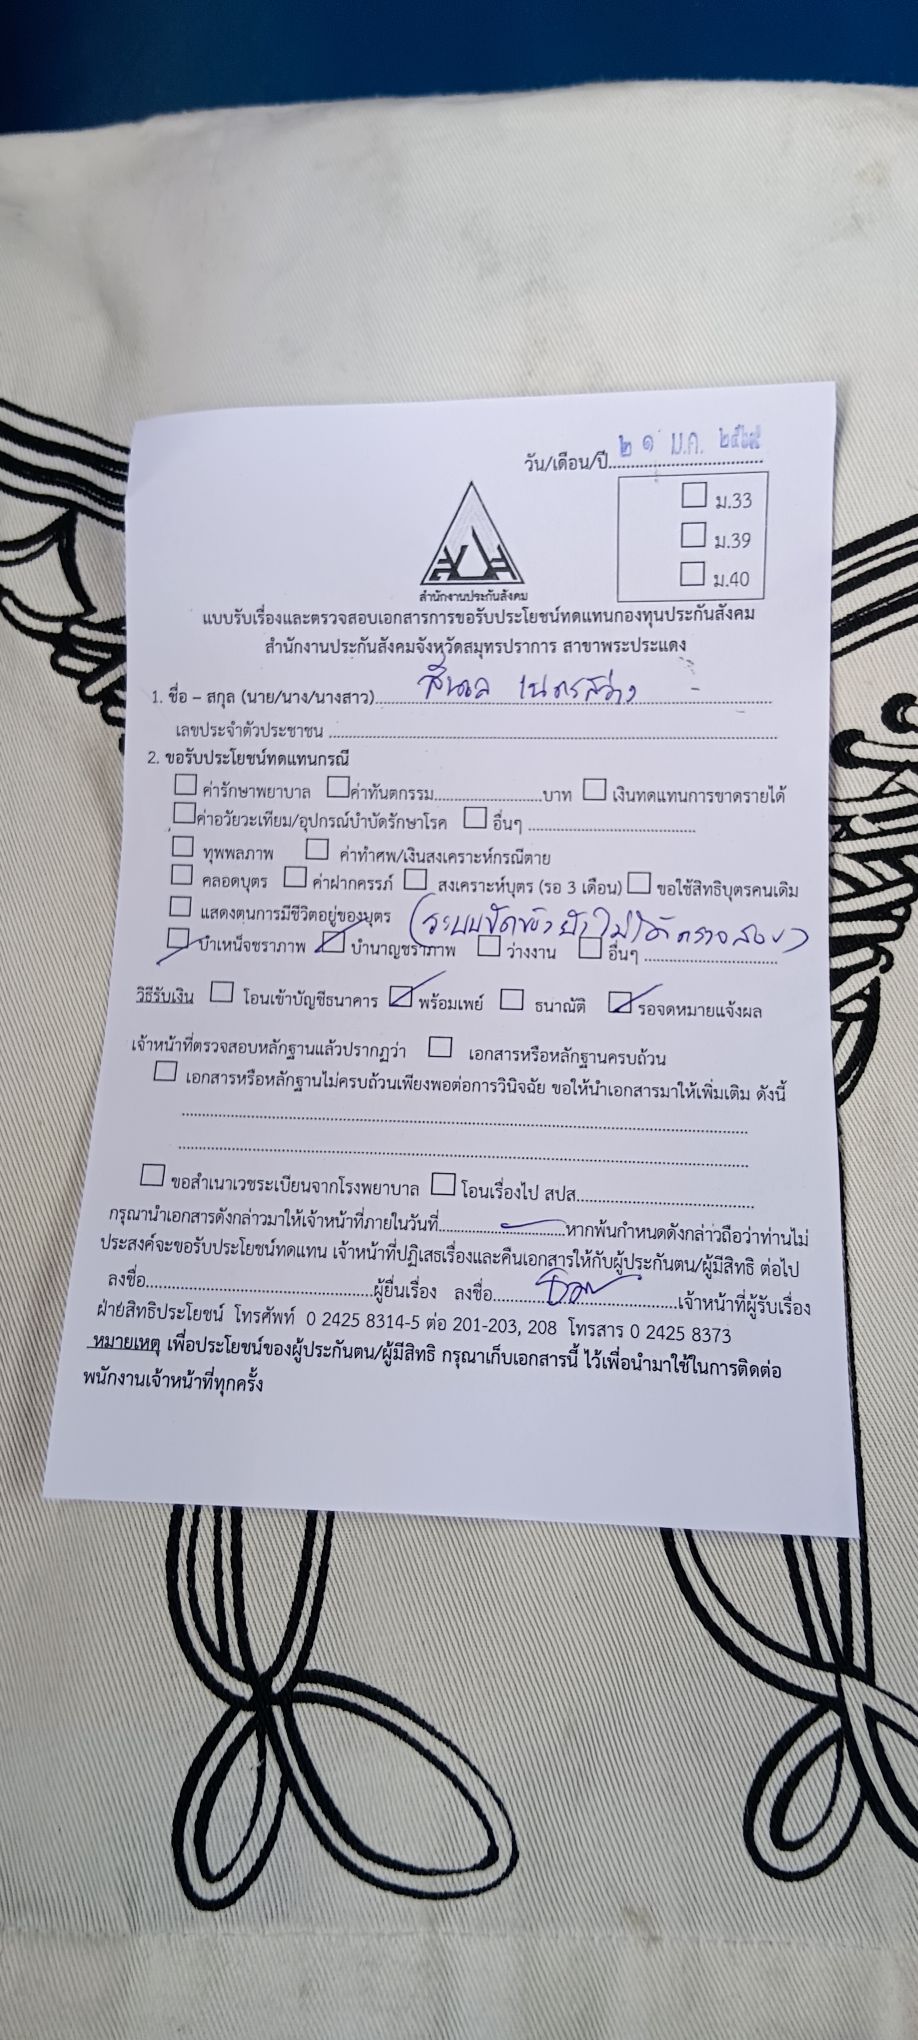 วัน/เดือน/ปี ๒ ๑ ม.ค. ๒๕๖๙
ม.33
ม.39
ม.40
สำนักงานประกันสังคม
แบบรับเรื่องและตรวจสอบเอกสารการขอรับประโยชน์ทดแทนกองทุนประกันสังคม
สำนักงานประกันสังคมจังหวัดสมุทรปราการ สาขาพระประแดง
1. ชื่อ – สกุล (นาย/นาง/นางสาว) เนตรสว่าง
เลขประจำตัวประชาชน
2. ขอรับประโยชน์ทดแทนกรณี
ค่ารักษาพยาบาล ค่าทันตกรรม บาท เงินทดแทนการขาดรายได้
ค่าอวัยวะเทียม/อุปกรณ์บำบัดรักษาโรค อื่นๆ
ทุพพลภาพ ค่าทำศพ/เงินสงเคราะห์กรณีตาย
คลอดบุตร ค่าฝากครรภ์ สงเคราะห์บุตร (รอ 3 เดือน) ขอใช้สิทธิบุตรคนเดิม
แสดงตนการมีชีวิตอยู่ของบุตร (ระบบขัดข้อง ยังไม่ได้ตรวจสอบ)
บำเหน็จชราภาพ บำนาญชราภาพ ว่างงาน อื่นๆ
วิธีรับเงิน โอนเข้าบัญชีธนาคาร พร้อมเพย์ ธนาณัติ รอจดหมายแจ้งผล
เจ้าหน้าที่ตรวจสอบหลักฐานแล้วปรากฏว่า เอกสารหรือหลักฐานครบถ้วน
เอกสารหรือหลักฐานไม่ครบถ้วนเพียงพอต่อการวินิจฉัย ขอให้นำเอกสารมาให้เพิ่มเติม ดังนี้
ขอสำเนาเวชระเบียนจากโรงพยาบาล โอนเรื่องไป สปส.
กรุณานำเอกสารดังกล่าวมาให้เจ้าหน้าที่ภายในวันที่ หากพ้นกำหนดดังกล่าวถือว่าท่านไม่
ประสงค์จะขอรับประโยชน์ทดแทน เจ้าหน้าที่ปฏิเสธเรื่องและคืนเอกสารให้กับผู้ประกันตน/ผู้มีสิทธิ ต่อไป
ลงชื่อ ผู้ยื่นเรื่อง ลงชื่อ เจ้าหน้าที่ผู้รับเรื่อง
ฝ่ายสิทธิประโยชน์ โทรศัพท์ 0 2425 8314-5 ต่อ 201-203, 208 โทรสาร 0 2425 8373
หมายเหตุ เพื่อประโยชน์ของผู้ประกันตน/ผู้มีสิทธิ กรุณาเก็บเอกสารนี้ ไว้เพื่อนำมาใช้ในการติดต่อ
พนักงานเจ้าหน้าที่ทุกครั้ง